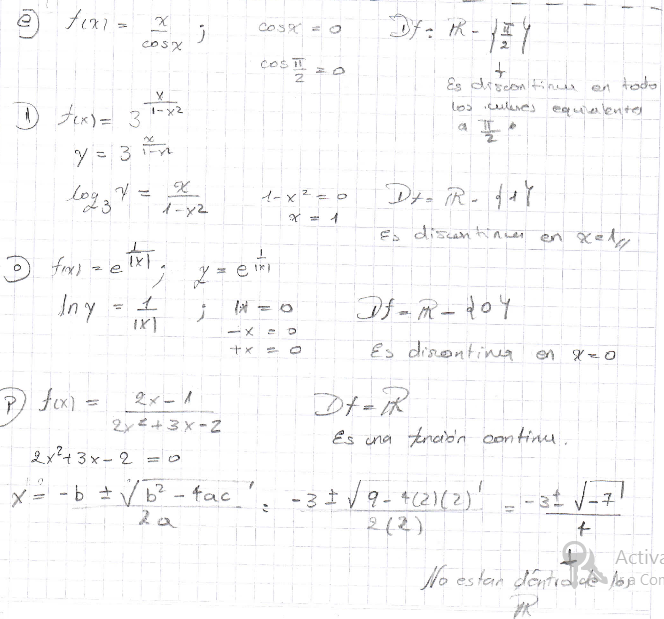 e) f(x) = x/cosx ; cosx = 0 Df: R - {π/2}
cos π/2 = 0
Es discontinua en todo
los valores equivalentes
a π/2.
f(x) = 3^(x/(1-x²))
y = 3^(x/(1-x²))
log₃ y = x/(1-x²) 1-x² = 0 Df = R - {1}
x = 1
Es discontinua en x=1//
o) f(x) = e^(1/|x|) ; y = e^(1/|x|)
ln y = 1/|x| ; |x| = 0 Df = R - {0}
-x = 0
+x = 0 Es discontinua en x=0
p) f(x) = (2x-1)/(2x²+3x-2) Df = R
Es una función continu.
2x²+3x-2 = 0
x = (-b ± √(b²-4ac))/2a = (-3 ± √(9-4(2)(2)))/2(2) = (-3 ± √-7)/4
Activa
No estan dentro de los Con
R